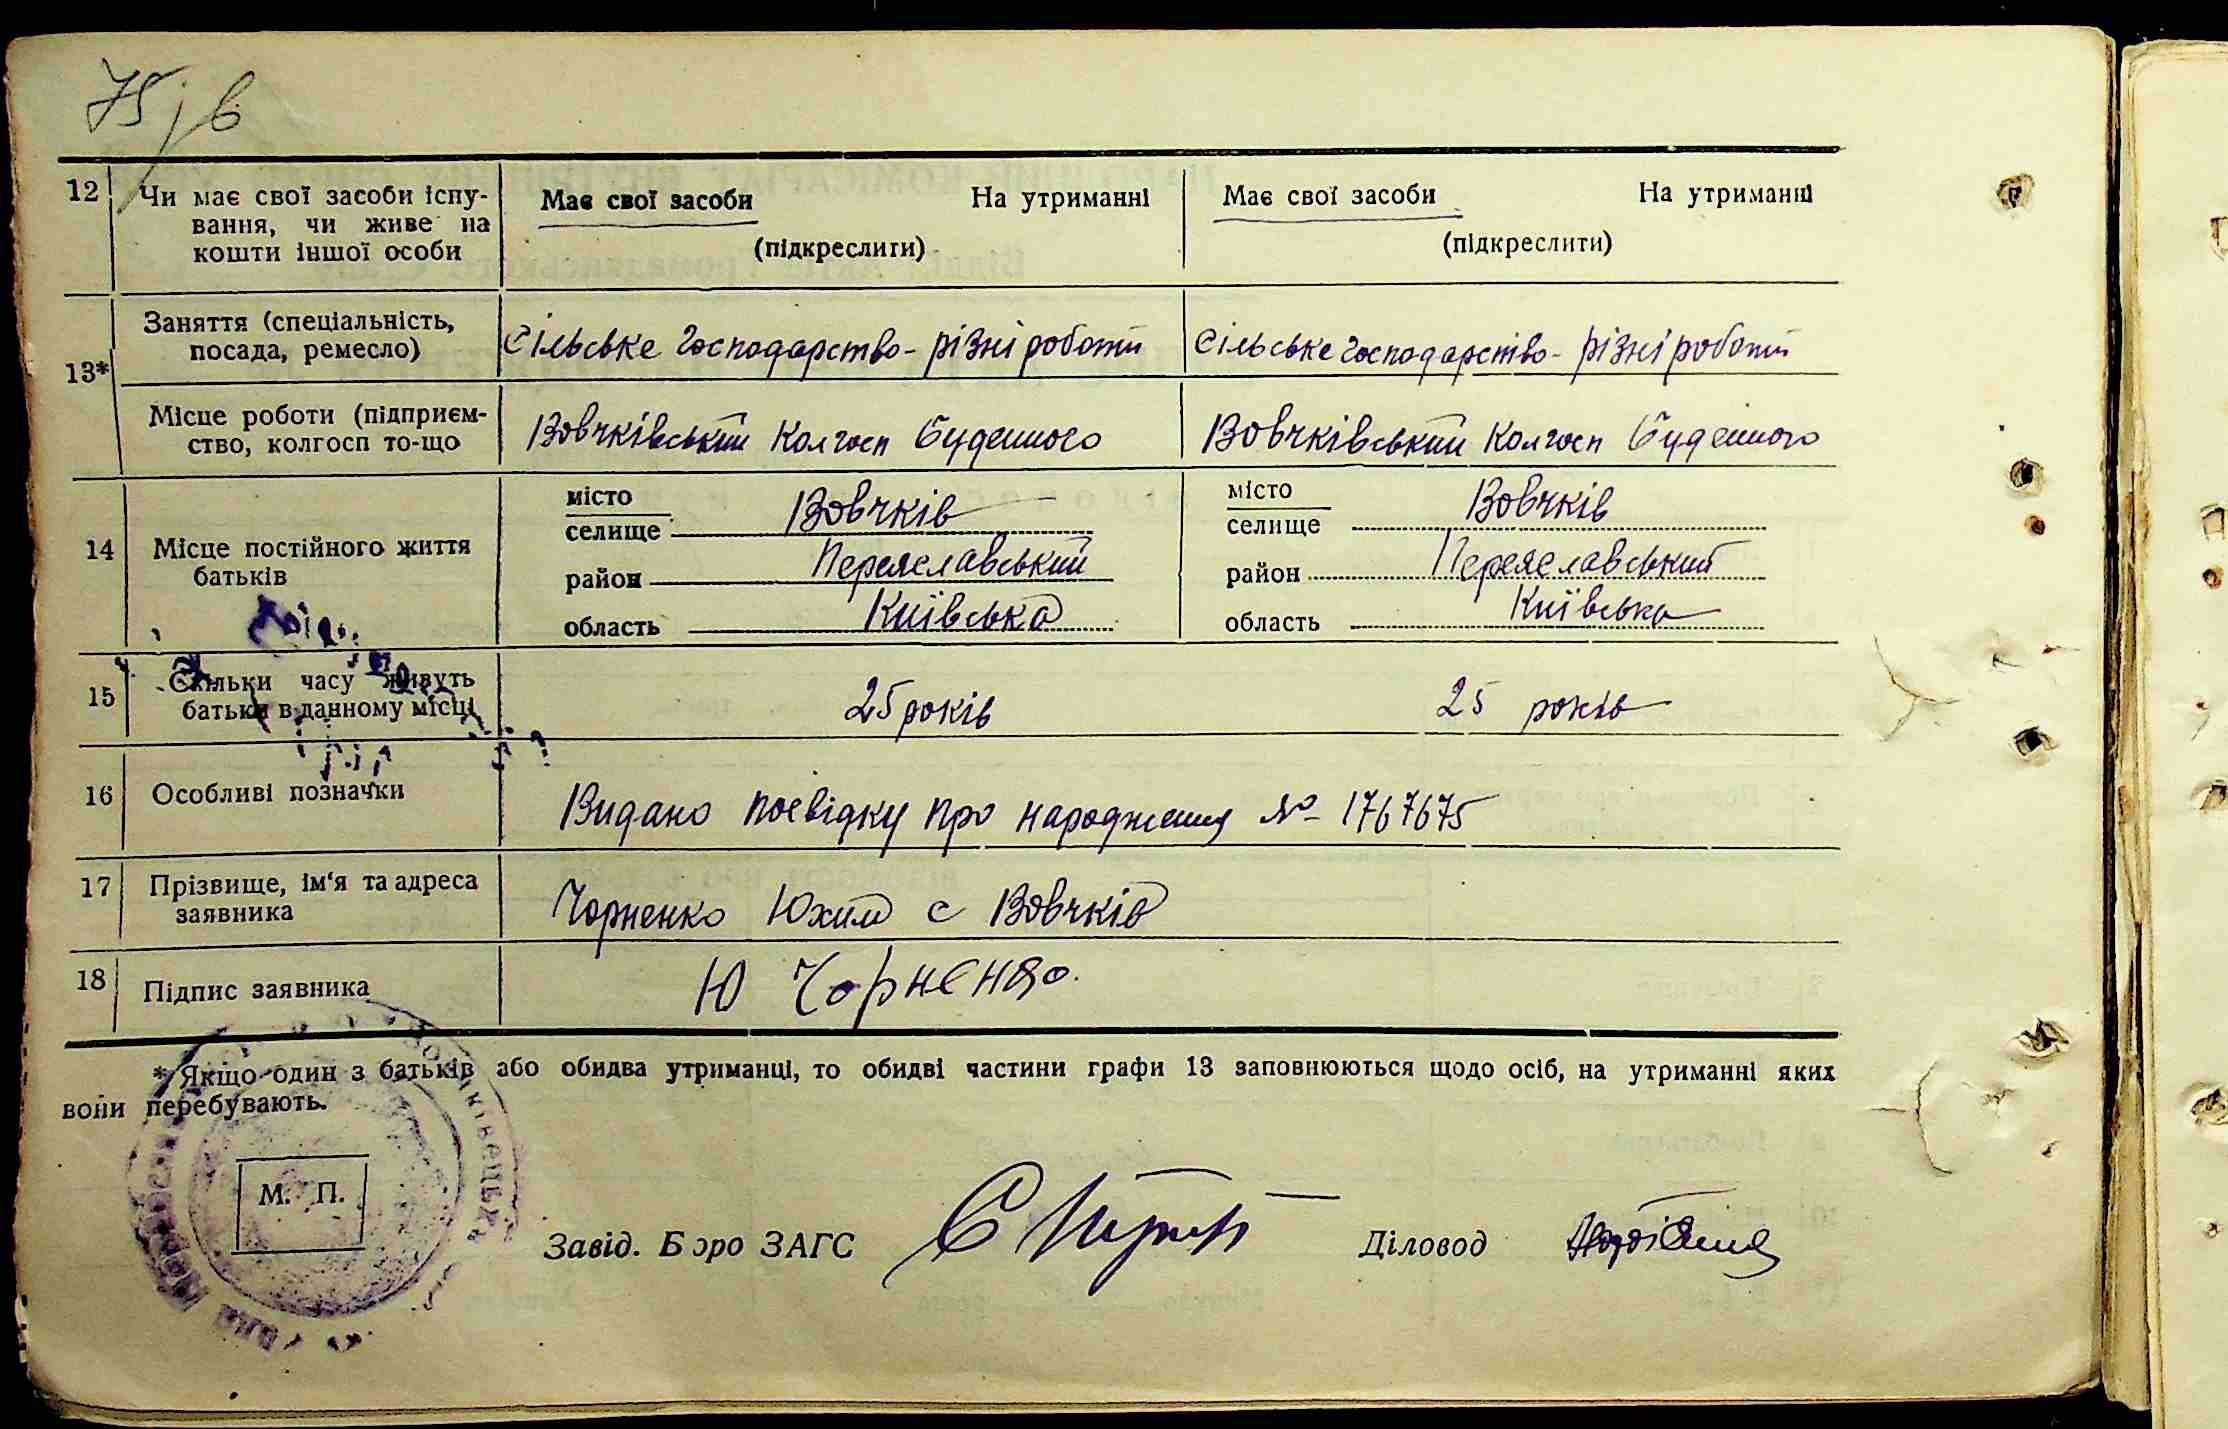 12 Чи має свої засоби існу-
вання, чи живе на
кошти іншої особи
Має свої засоби На утриманні
(підкреслити)
Має свої засоби На утриманні
(підкреслити)
13*
Заняття (спеціальність,
посада, ремесло)
Сільське господарство - різні роботи
Сільське господарство - різні роботи
Місце роботи (підприєм-
ство, колгосп то-що
Вовчківський колгосп Буденного
Вовчківський колгосп Буденного
14 Місце постійного життя
батьків
місто
селище Вовчків
район Переяславський
область Київська
місто
селище Вовчків
район Переяславський
область Київська
15 Скільки часу живуть
батьки в данному місці
25 років
25 років
16 Особливі позначки
Видано посвідку про народження № 1767675
17 Прізвище, ім'я та адреса
заявника
Чорненко Юхим с Вовчків
18 Підпис заявника
Ю Чорненко.
* Якщо один з батьків або обидва утриманці, то обидві частини графи 13 заповнюються щодо осіб, на утриманні яких
вони перебувають.
М. П.
Завід. Бюро ЗАГС
Діловод